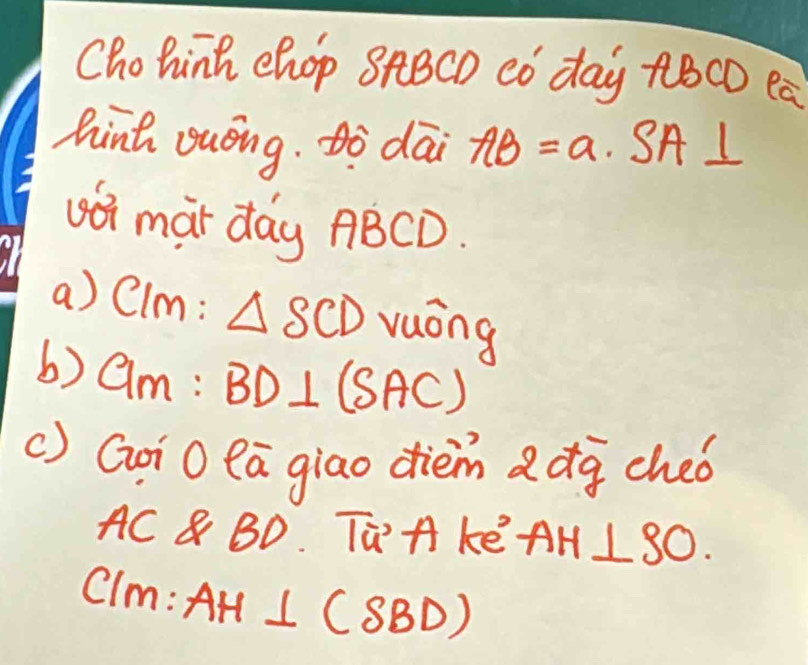 Cho hình chóp SABCD có đáy ABCD là
hình vuông. Độ dài AB = a. SA ⊥
với mặt đáy ABCD.
a) C/m: Δ SCD vuông
b) C/m: BD ⊥ (SAC)
c) Gọi O là giao điểm 2 đg chéo
AC & BD. Từ A kẻ AH ⊥ SO.
C/m: AH ⊥ (SBD)